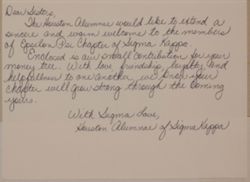 Dear Sisters,
The Houston Alumnae would like to extend a
sincere and warm welcome to the members
of Epsilon Psi Chapter of Sigma Kappa.
Enclosed is our small contribution for your
money tree. With love friendship, loyalty, and
helpfulness to one another, we know your
chapter will grow strong through the coming
years.
With Sigma Love,
Houston Alumnae of Sigma Kappa